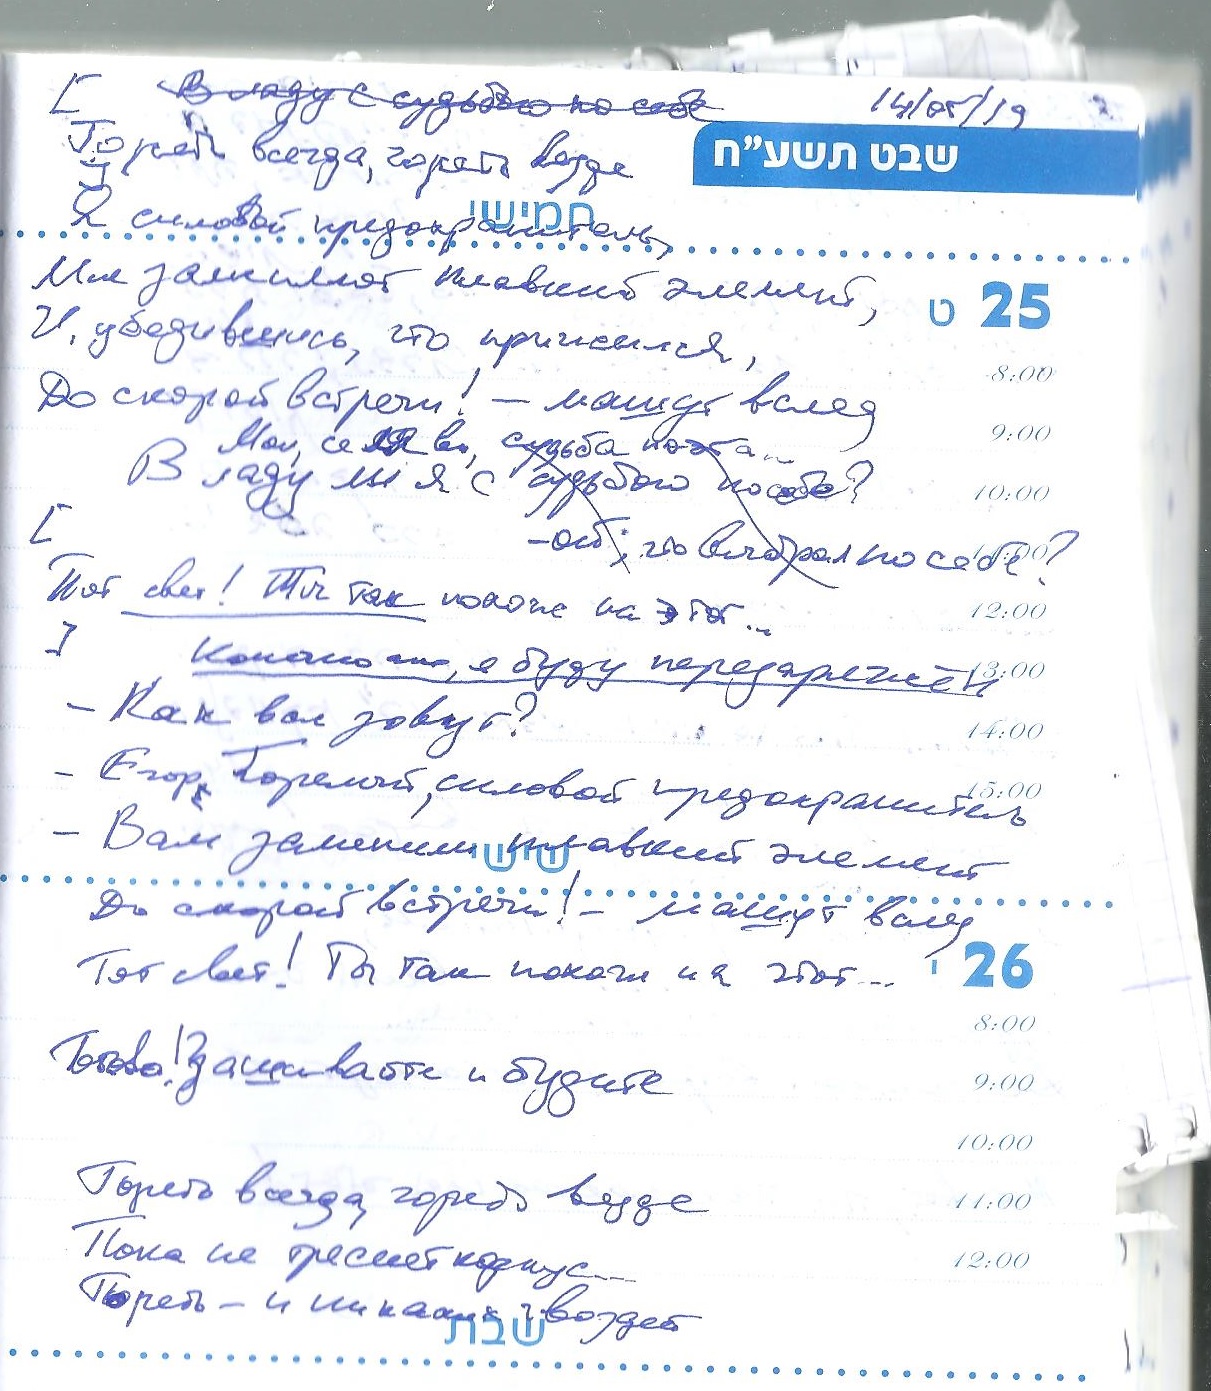 [ В ладу с судьбою по себе 14/05/19
שבט תשע"ח
Гореть всегда, гореть везде
חמישי
Я силовой предохранитель,
Мне заменяют плавкий элемент,
ט 25
И, убедившись, что прижился,
8:00
До скорой встречи! – машут вслед
9:00
Мои, се ля ви, судьба поэта...
В ладу ли я с судьбою по себе?
10:00
[
– ой, что выбрал по себе?
11:00
Тот свет! Ты так похож на этот...
12:00
]
Конечно же, я буду перезаряжен
13:00
– Как вас зовут?
14:00
– Егор Горелый, силовой предохранитель
15:00
– Вам заменили плавкий элемент
שישי
До скорой встречи! – машут вслед
Тот свет! Ты так похож на этот...
י 26
8:00
Готово! Зашивайте и будите
9:00
10:00
Гореть всегда, гореть везде
11:00
Пока не треснет корпус...
12:00
Гореть – и никаких гвоздей
שבת